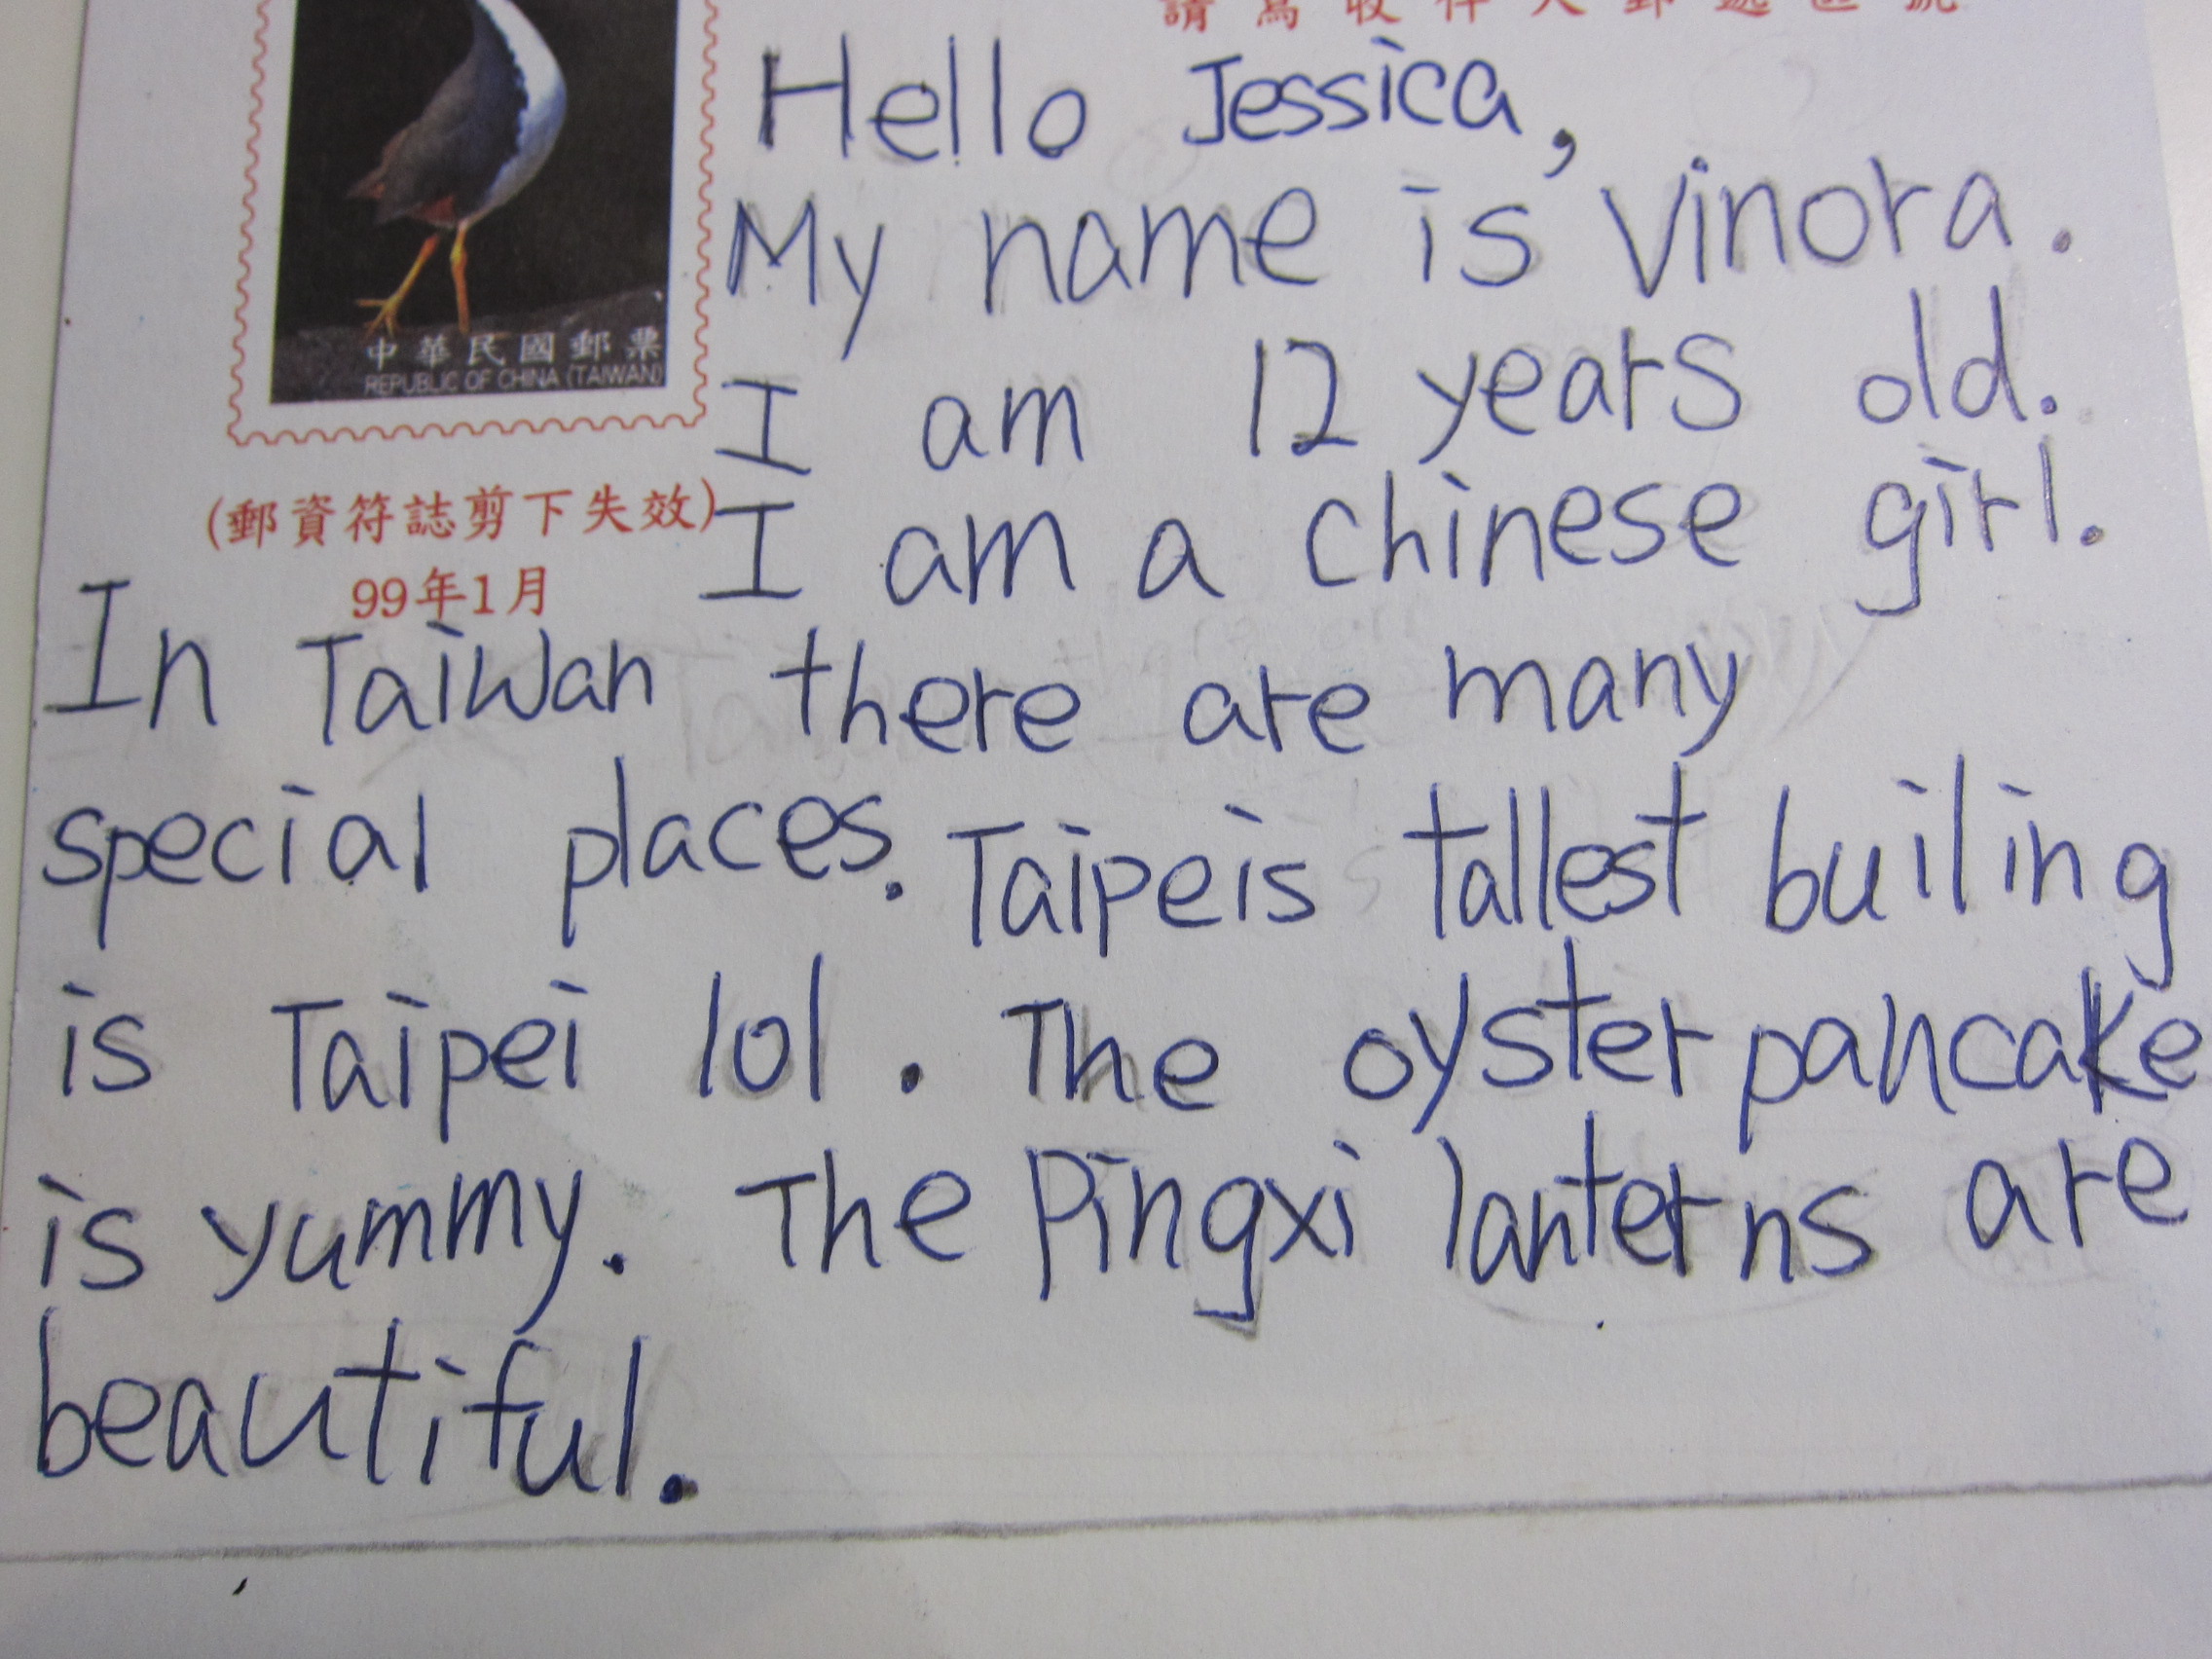 請寫收件人郵遞區號
Hello Jessica,
My name is Vinora.
中華民國郵票
REPUBLIC OF CHINA (TAIWAN)
I am 12 years old.
(郵資符誌剪下失效)
I am a chinese girl.
99年1月
In Taiwan there are many
special places. Taipeis tallest builing
is Taipei 101. The oyster pancake
is yummy. The Pingxi lanterns are
beautiful.